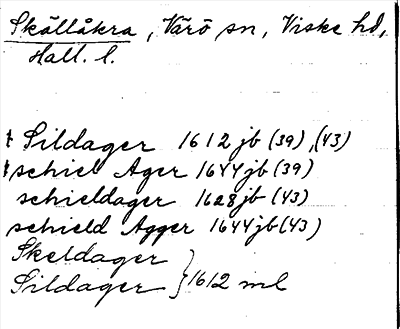 Skällåkra, Värö sn, Viske hd,
Hall. l.
† Sildager 1612 jb (39), (43)
† schiel Ager 1644 jb (39)
schieldager 1628 jb (43)
schield Agger 1644 jb (43)
Skeldager
Sildager } 1612 ml